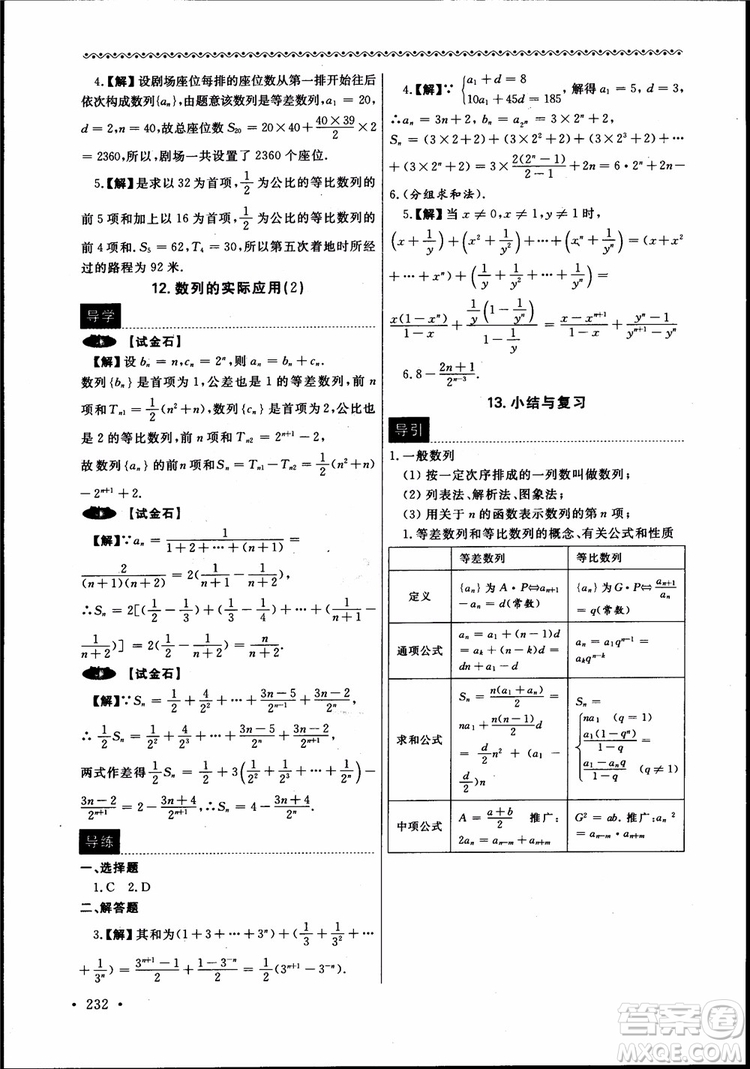 4.【解】设剧场座位每排的座位数从第一排开始往后
依次构成数列{aₙ},由题意该数列是等差数列,a₁=20,
d=2,n=40,故总座位数 S₂₀=20×40+(40×39)/2×2
=2360,所以,剧场一共设置了 2360 个座位.
5.【解】是求以 32 为首项,1/2 为公比的等比数列的
前 5 项和加上以 16 为首项,1/2 为公比的等比数列的
前 4 项和. S₅=62,T₄=30,所以第五次着地时所经
过的路程为 92 米.
12.数列的实际应用(2)
导学
【试金石】
【解】设 bₙ=n,cₙ=2ⁿ,则 aₙ=bₙ+cₙ.
数列{bₙ}是首项为 1,公差也是为 1 的等差数列,前 n
项和 Tₙ₁=1/2(n²+n),数列{cₙ}是首项为 2,公比也
是 2 的等比数列,前 n 项和 Tₙ₂=2ⁿ⁺¹-2,
故数列{aₙ}的前 n 项和 Sₙ=Tₙ₁-Tₙ₂=1/2(n²+n)
-2ⁿ⁺¹+2.
【试金石】
【解】∵aₙ=1/(1+2+…+(n+1))=
2/((n+1)(n+2))=2(1/(n+1)-1/(n+2)),
∴Sₙ=2[(1/2-1/3)+(1/3-1/4)+…+(1/(n+1)-
1/(n+2))]=2(1/2-1/(n+2))=n/(n+2).
【试金石】
【解】∵Sₙ=1/2+4/2²+…+(3n-5)/2ⁿ⁻¹+(3n-2)/2ⁿ,
∴1/2Sₙ=1/2²+4/2³+…+(3n-5)/2ⁿ+(3n-2)/2ⁿ⁺¹,
两式作差得1/2Sₙ=1/2+3(1/2²+1/2³+…+1/2ⁿ)-
(3n-2)/2ⁿ⁺¹=2-(3n+4)/2ⁿ⁺¹,∴Sₙ=4-(3n+4)/2ⁿ.
导练
一、选择题
1.C 2.D
二、解答题
3.【解】其和为(1+3+…+3ⁿ)+(1/3+1/3²+…
+1/3ⁿ)=(3ⁿ⁺¹-1)/2+(1-3⁻ⁿ)/2=1/2(3ⁿ⁺¹-3⁻ⁿ).
• 232 •
4.【解】∵{a₁+d=8 10a₁+45d=185,解得 a₁=5,d=3,
∴aₙ=3n+2,bₙ=a₂ⁿ=3×2ⁿ+2,
Sₙ=(3×2+2)+(3×2²+2)+…+
(3×2ⁿ+2)=3×2(2ⁿ-1)/(2-1)+2n=6·2ⁿ+2n-
6.(分组求和法).
5.【解】当 x≠0,x≠1,y≠0,y≠1时,
(x+1/y)+(x²+1/y²)+…+(xⁿ+1/yⁿ)
=(x+x²+…+xⁿ)+(1/y+1/y²+…+1/yⁿ)=
x(1-xⁿ)/(1-x)+1/y(1-1/yⁿ)/(1-1/y)=(x-xⁿ⁺¹)/(1-x)+(yⁿ-1)/(yⁿ⁺¹-yⁿ).
6.8-(2n+1)/2ⁿ⁻³.
13.小结与复习
导引
1.一般数列
(1)按一定次序排成的一列数叫做数列;
(2)列表法、解析法、图象法;
(3)用关于 n 的函数表示数列的第 n 项;
1.等差数列和等比数列的概念、有关公式和性质
等差数列 等比数列
定义 {aₙ}为 A·P⇔aₙ₊₁-aₙ=d(常数) {aₙ}为 G·P⇔aₙ₊₁/aₙ=q(常数)
通项公式 aₙ=a₁+(n-1)d=aₖ+(n-k)d=dn+a₁-d aₙ=a₁qⁿ⁻¹=aₖqⁿ⁻ᵏ
求和公式 Sₙ=n(a₁+aₙ)/2=na₁+n(n-1)/2 d=d/2 n²+(a₁-d/2)n Sₙ={na₁ (q=1) a₁(1-qⁿ)/(1-q)=(a₁-aₙq)/(1-q) (q≠1)
中项公式 A=(a+b)/2 推广:2aₙ=aₙ₋ₘ+aₙ₊ₘ G²=ab.推广:aₙ²=aₙ₋ₘ×aₙ₊ₘ
答案圈